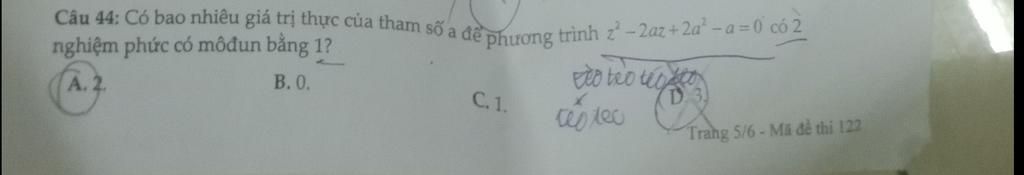 Câu 44: Có bao nhiêu giá trị thực của tham số a để phương trình z² − 2az + 2a² − a = 0 có 2
nghiệm phức có môđun bằng 1?
A. 2. B. 0. C. 1. D. 3.
Trang 5/6 - Mã đề thi 122